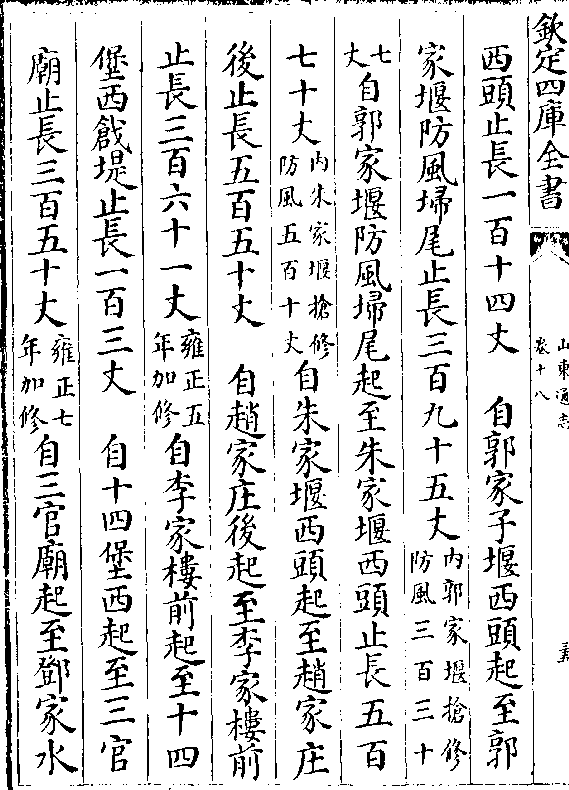 欽定四庫全書
山東通志
卷十八
西頭止長一百十四丈　自郭家子堰西頭起至郭
家堰防風埽尾止長三百九十五丈内郭家堰搶修防風三百三十
七丈自郭家堰防風埽尾起至朱家堰西頭止長五百
七十丈内朱家堰搶修防風五百十丈自朱家堰西頭起至趙家庄
後止長五百五十丈　自趙家庄後起至李家樓前
止長三百六十一丈雍正五年加修自李家樓前起至十四
堡西戧堤止長一百三丈　自十四堡西起至三官
廟止長三百五十丈雍正七年加修自三官廟起至鄧家水